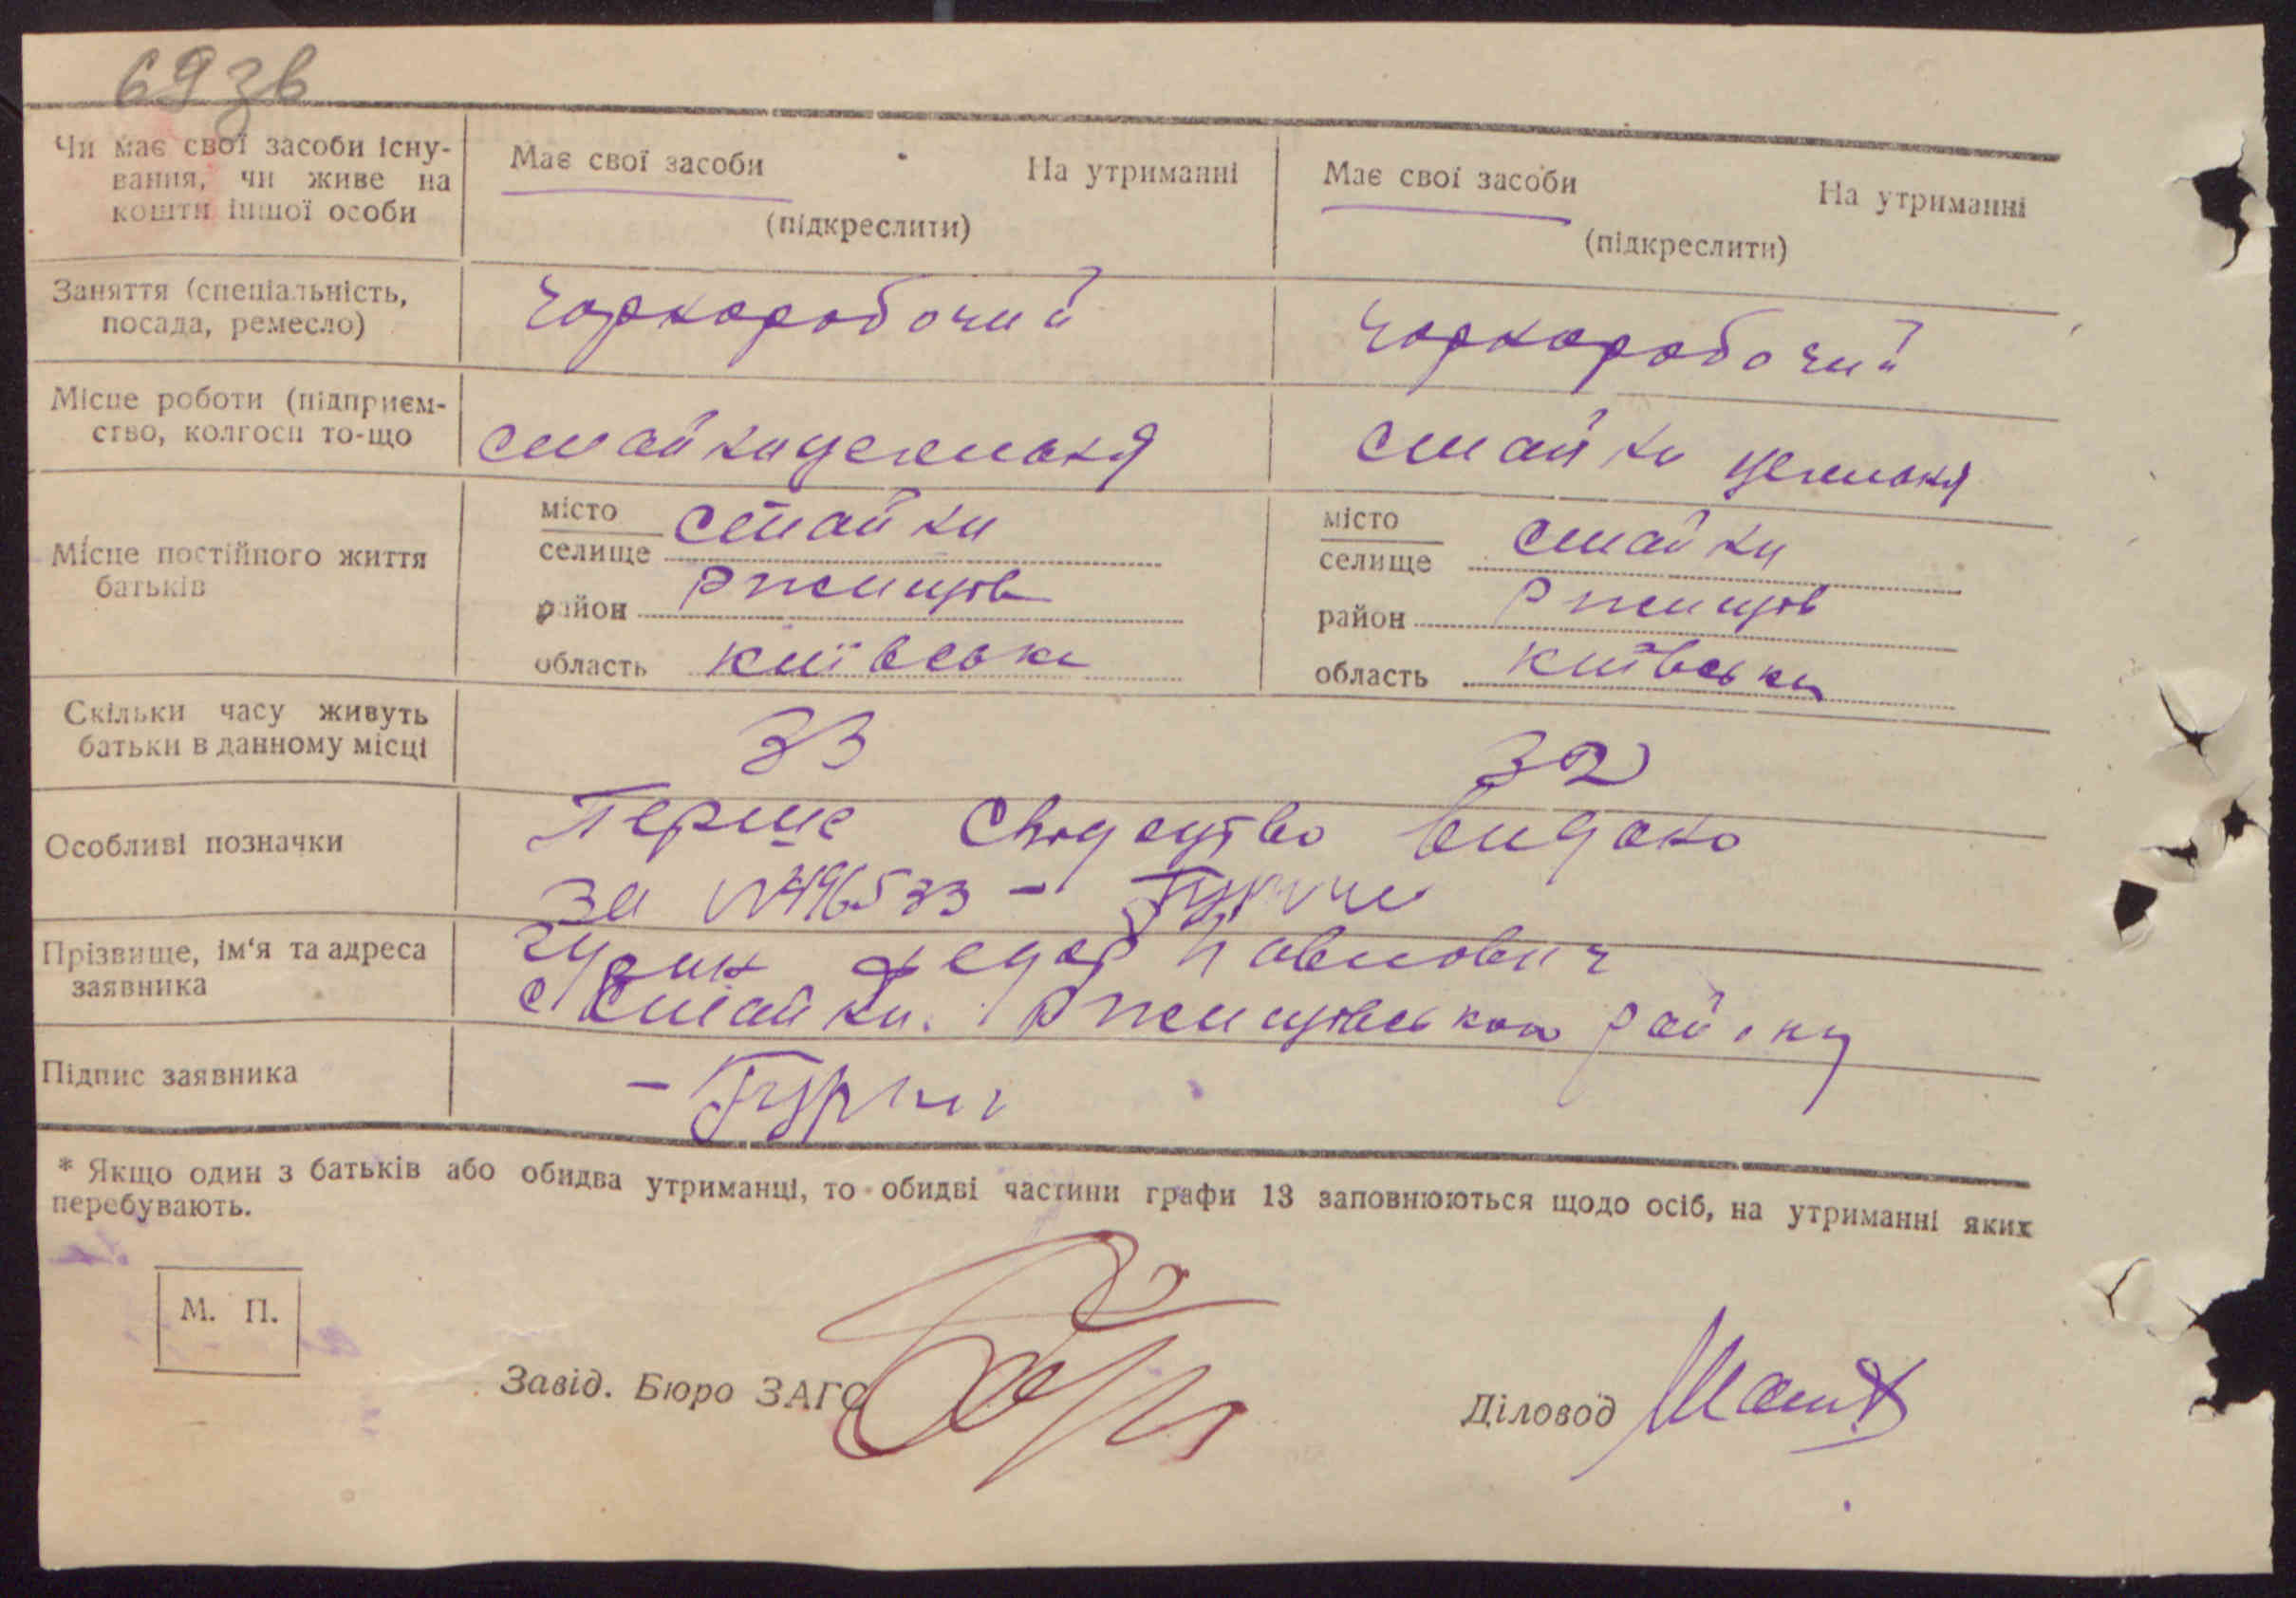 69 зв
Чи має свої засоби існу-
вання, чи живе на
кошти іншої особи
Має свої засоби На утриманні
(підкреслити)
Має свої засоби На утриманні
(підкреслити)
Заняття (спеціальність,
посада, ремесло)
чорноробочий
чорноробочий
Місце роботи (підприєм-
ство, колгосп то-що
стайки
стайки
Місце постійного життя
батьків
місто
селище стайки
район ржищів
область київська
місто
селище стайки
район ржищів
область київська
Скільки часу живуть
батьки в данному місці
33
32
Особливі позначки
Перше свідоцтво видано
за №
Прізвище, ім'я та адреса
заявника
Федор Павлович
с Стайки. Ржищівського району
Підпис заявника
* Якщо один з батьків або обидва утриманці, то обидві частини графи 13 заповнюються щодо осіб, на утриманні яких
перебувають.
М. П.
Завід. Бюро ЗАГС
Діловод